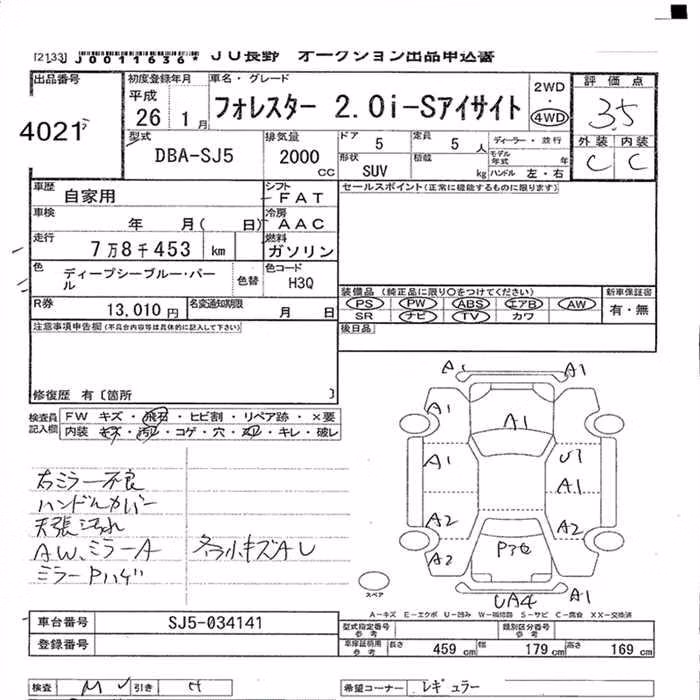 [2133] J0011636* JU長野 オークション出品申込書
出品番号
4021
初度登録年月
平成
26 1月
車名・グレード
フォレスター 2.0i-Sアイサイト
2WD
・
4WD
評価点
3.5
外装 内装
C C
型式
DBA-SJ5
排気量
2000
CC
ドア
5
定員
5 人
形状
SUV
積載
kg
ディーラー・並行
モデル年式 年
ハンドル 左・右
車歴
自家用
シフト
FAT
車検
年 月( 日)
冷房
AAC
走行
7万8千453 km
燃料
ガソリン
色
ディープシーブルー・パール
色替
色コード
H3Q
R券
13,010円
名変通知期限
月 日
セールスポイント(正常に機能するものに限ります)
装備品 (純正品に限り○をつけてください)
PS PW ABS エアB AW
SR ナビ TV カワ
新車保証書
有・無
後日品
注意事項申告欄(不具合内容等は具体的に記入して下さい)
修復歴 有〔箇所 〕
検査員記入欄
FW キズ・飛石・ヒビ割・リペア跡・×要
内装 キズ・汚レ・コゲ・穴・スレ・キレ・破レ
右ミラー不良
ハンドルカバー
天張汚れ
AW、ミラーA
ミラーPハゲ
各小キズAU
A1 A1
A1
A1
A1 U1
A1
A2 A2
A2
Pヨセ
UA4 A1
スペア
A-キズ E-エクボ U-凹み W-補修跡 S-サビ C-腐食 XX-交換済
車台番号
SJ5-034141
登録番号
型式指定番号
参考
類別区分番号
参考
車庫証明用
参考
長さ 459 cm 幅 179 cm 高さ 169 cm
検査 引き
希望コーナー レギュラー